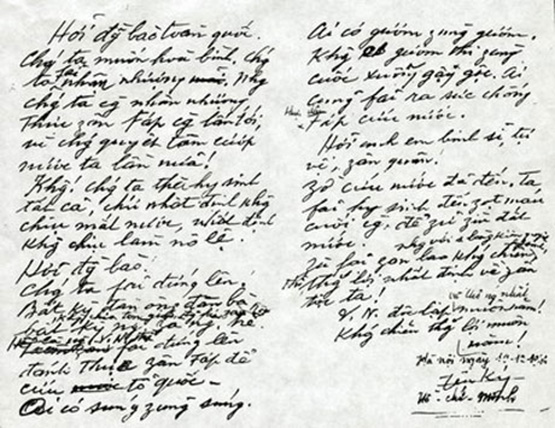 Hỡi đ/ bào toàn quốc.
Chg ta muốn hoà bình, chg
ta fải nhân nhượng. Nhg
chg ta cg nhân nhượng
thực zân Fáp cg lấn tới,
vì chg quyết tâm cướp
nước ta lần nữa!
Khg! chg ta thà hy sinh
tất cả, chứ nhất định khg
chịu mất nước, nhất định
khg chịu làm nô lệ.
Hỡi đ/ bào!
Chg ta fải đứng lên!
Bất kỳ đàn ông, đàn bà,
bất kỳ ng già, ng trẻ.
fải đứng lên
đánh thực zân Fáp để
cứu tổ quốc -
Ai có súng zùng súng.
Ai có gươm zùng gươm.
Khg có gươm thì zùng
cuốc xuổng gậy gộc. Ai
cũng fải ra sức chống
Fáp cứu nước.
Hỡi anh em binh sĩ, tự
vệ, zân quân!
Zờ cứu nước đã đến. Ta
fải hy sinh đến zọt máu
cuối cg, để zữ zìn đất
nước.
Zù fải zan lao khg chiến
thắng lợi nhất định về zân
tộc ta!
V. N. độc lập
và thống nhất
muôn năm!
Khg chiến thg lợi muôn
năm!
Hà nội ngày 19-12-1946
Hồ-chí-minh